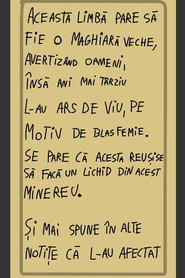 ACEASTĂ LIMBĂ PARE SĂ
FIE O MAGHIARĂ VECHE,
AVERTIZÂND OAMENI,
ÎNSĂ ANI MAI TÂRZIU
L-AU ARS DE VIU, PE
MOTIV DE BLASFEMIE.
SE PARE CĂ ACESTA REUȘISE
SĂ FACĂ UN LICHID DIN ACEST
MINEREU.
ȘI MAI SPUNE ÎN ALTE
NOTIȚE CĂ L-AU AFECTAT